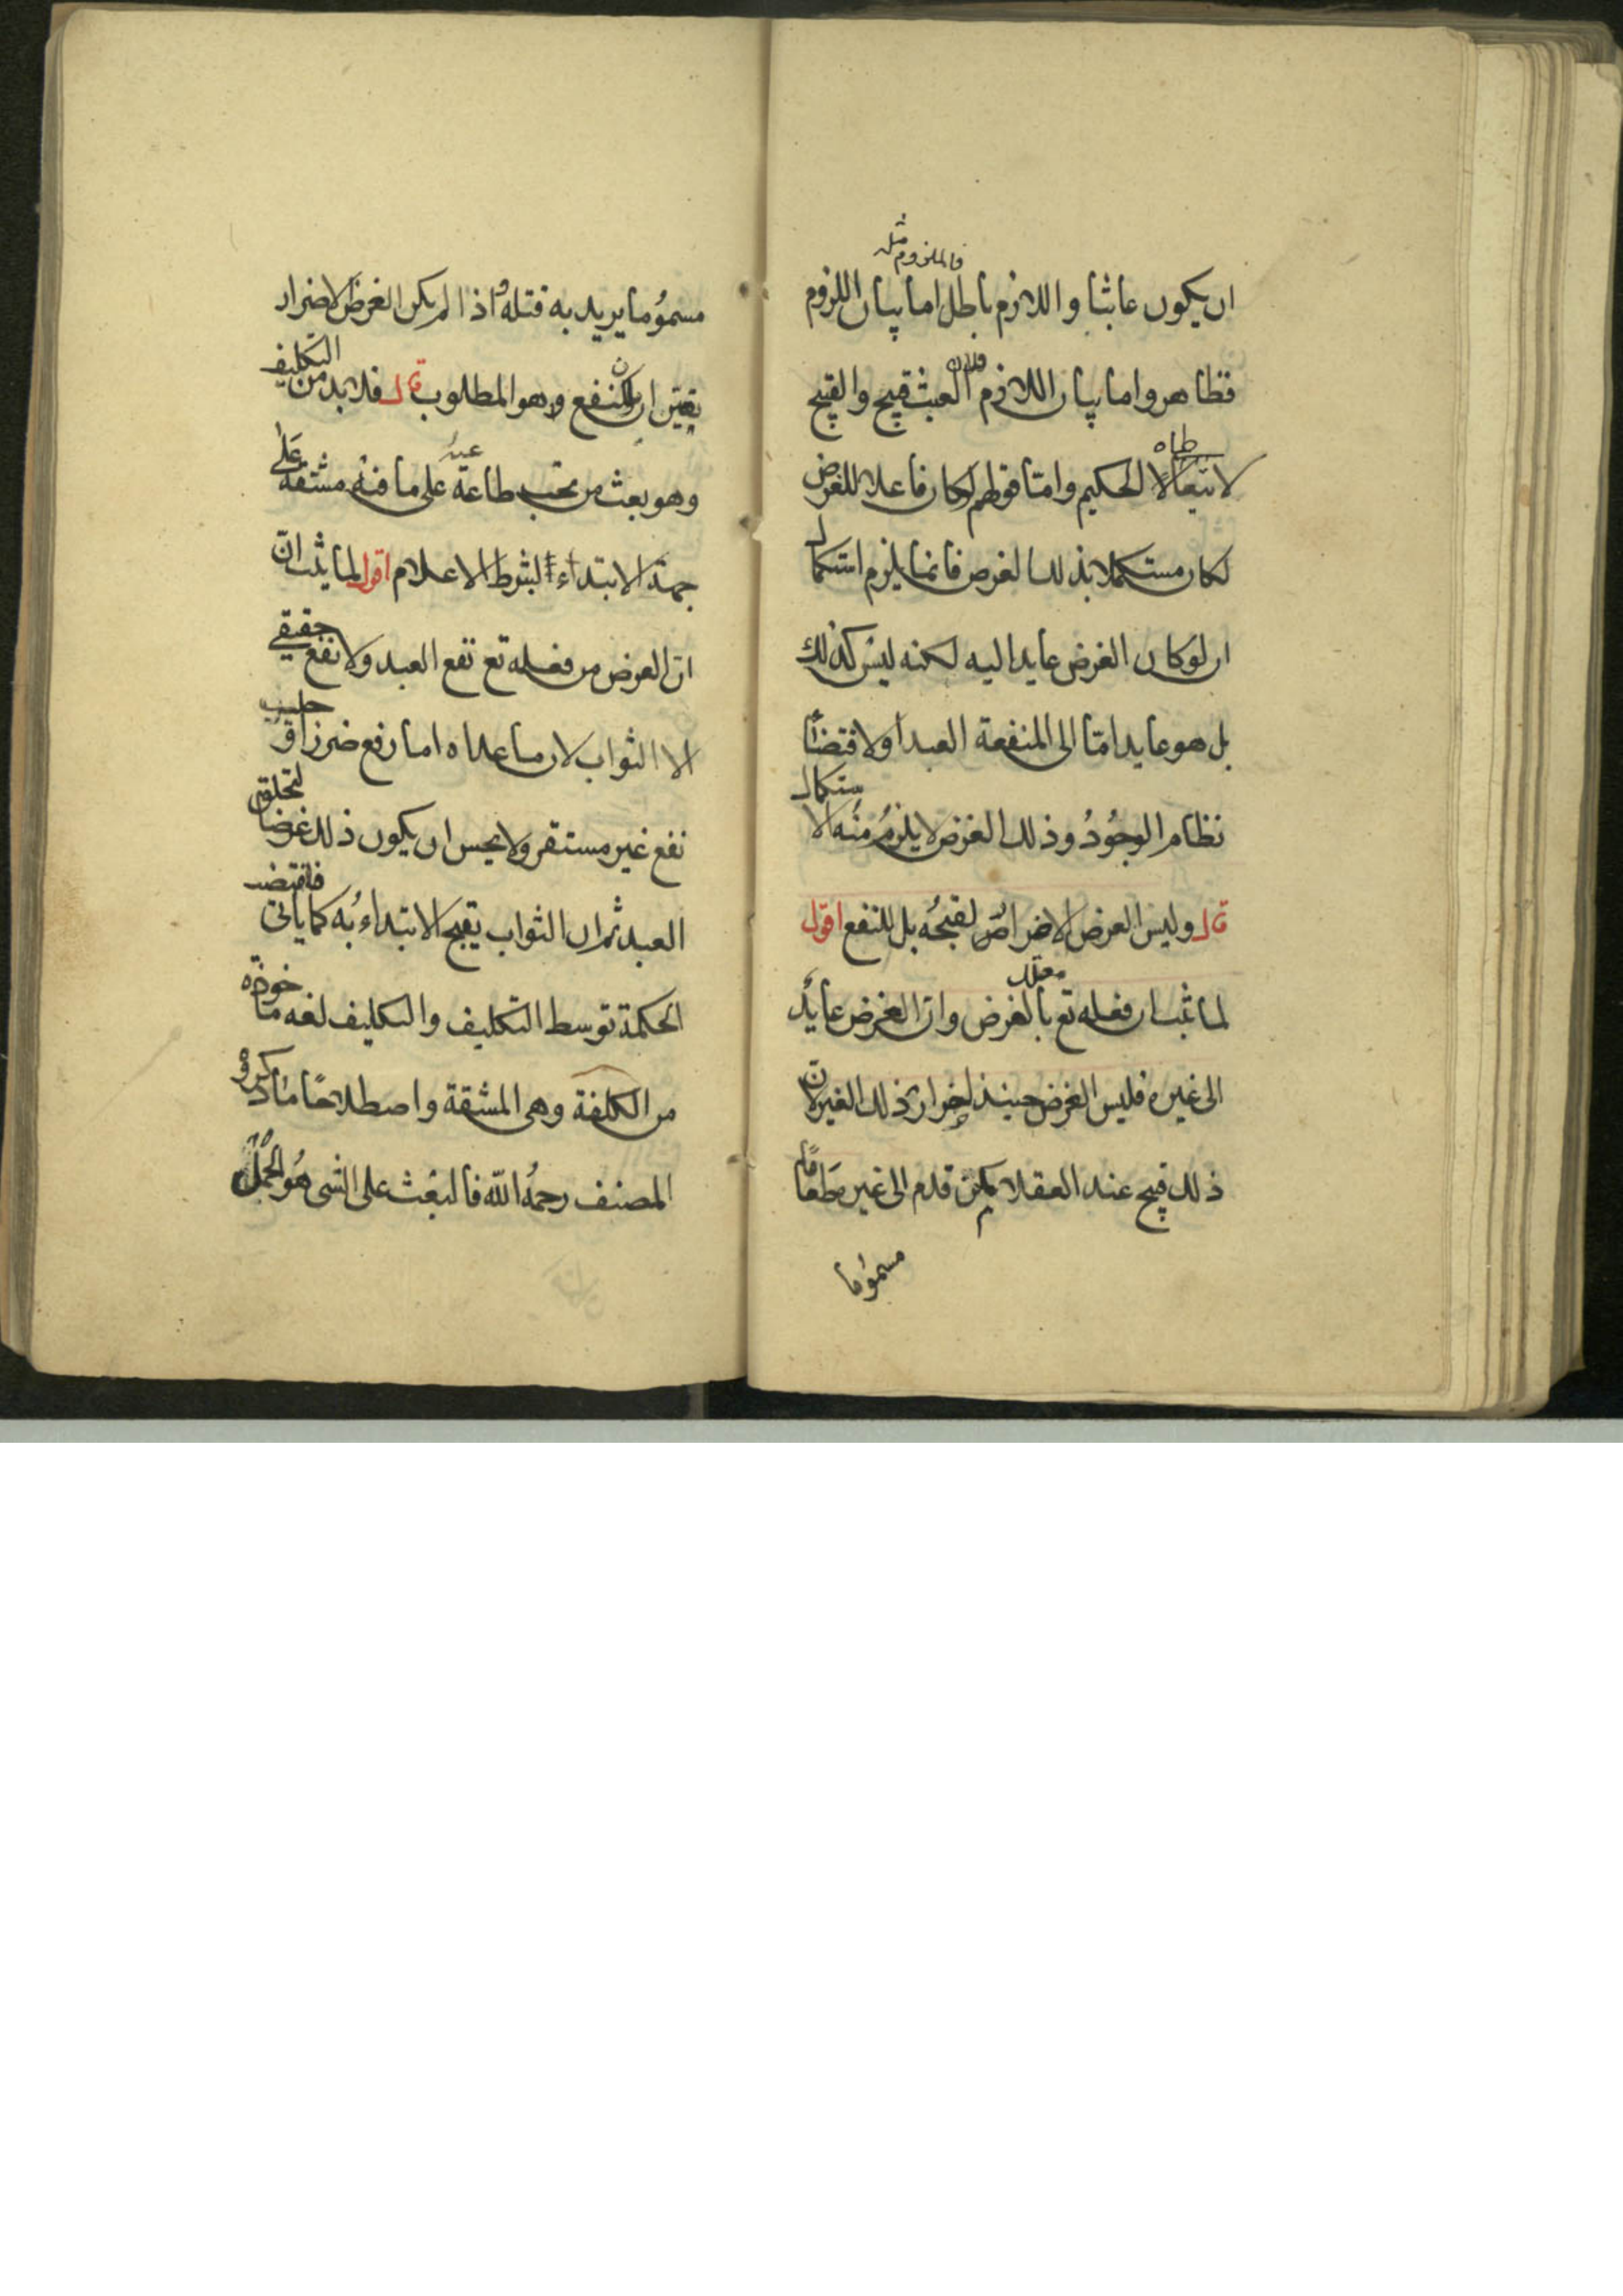 ان يكون عابثا واللازم باطل فالملزوم مثله اما بيان اللزوم
فظاهر واما بيان اللازم فلان العبث قبيح والقبيح
لا يتعاطاه الحكيم واما قولهم لو كان فاعلا للغرض
لكان مستكملا بذلك الغرض فانما يلزم استكمال
ان لو كان الغرض عايدا اليه لكنه ليس كذلك
بل هو عايد اما الى المنفعة العبد او لاقتضاء
نظام الوجود وذلك الغرض لا يلزم منه الاستكمال
قال وليس الغرض الاضرار لقبحه بل للنفع اقول
لما ثبت ان فعله تع معلل بالغرض وان الغرض عايد
الى غيره فليس الغرض حينئذ اضرار ذلك الغير لان
ذلك قبيح عند العقلا كمن قدم الى غيره طعاما
مسموما
مسموما يريد به قتله واذا لم يكن الغرض الاضرار
تعين ان يكون للنفع وهو المطلوب قال فلا بد من التكليف
وهو بعث من تجب طاعته على ما فيه مشقة على
جهة الابتداء بشرط الاعلام اقول لما ثبت ان
ان الغرض من فعله تع نفع العبد ولا نفع حقيقي
الا الثواب لان ما عداه اما رفع ضرر او جلب
نفع غير مستقر ولا يحسن ان يكون ذلك غرضا لخلق
العبد ثم ان الثواب يقبح الابتداء به كما ياتى فاقتضت
الحكمة توسط التكليف والتكليف لغه ماخوذه
من الكلفة وهى المشقة واصطلاحا ما ذكره
المصنف رحمه الله فالبعث على الشى هو الحمل